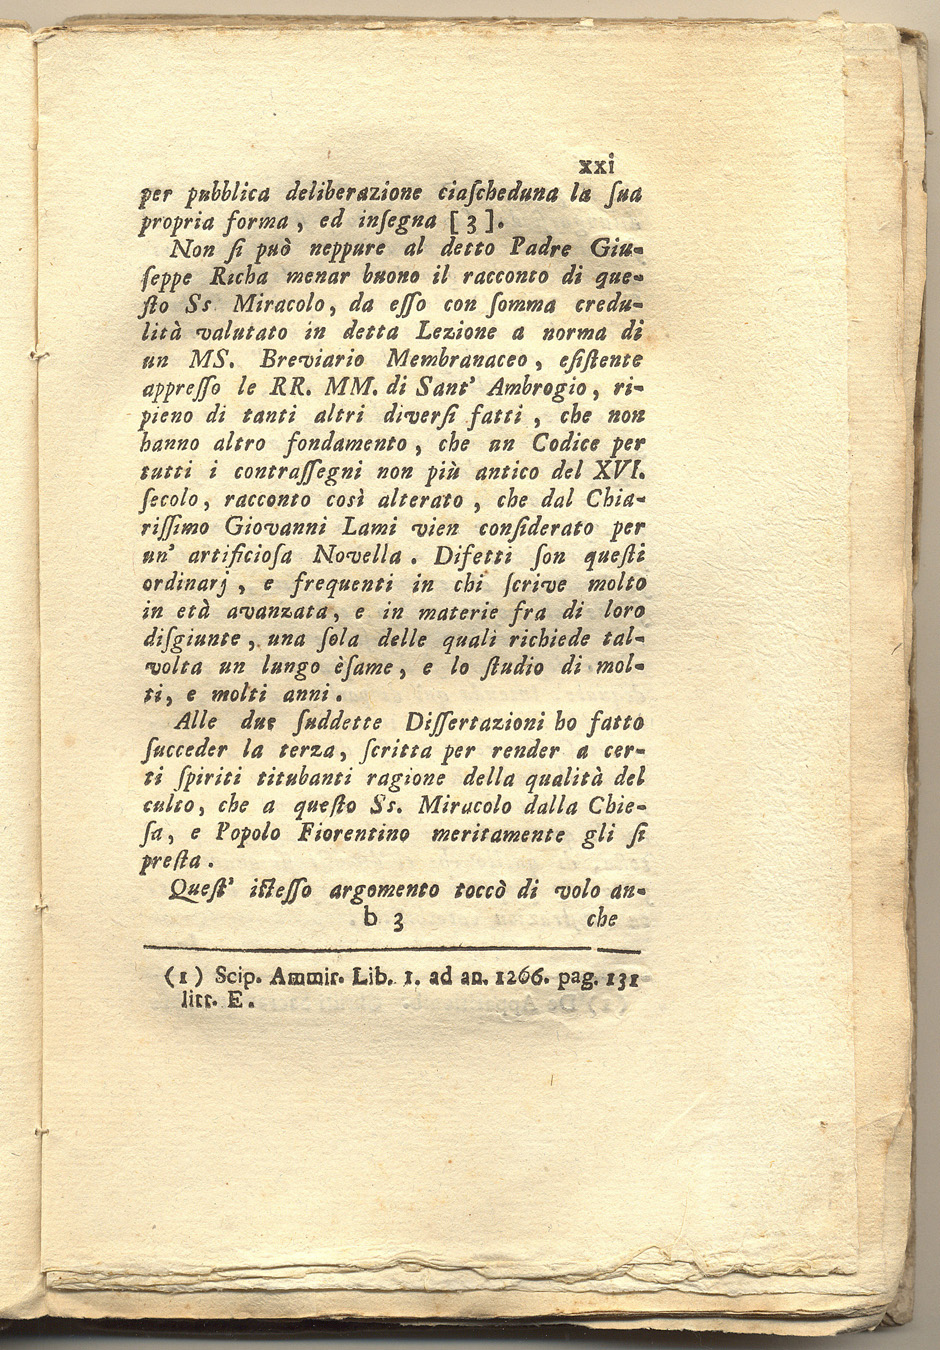 xxi
per pubblica deliberazione ciaſcheduna la ſua
propria forma , ed inſegna [ 3 ].
Non ſi può neppure al detto Padre Giu-
ſeppe Richa menar buono il racconto di que-
ſto Ss. Miracolo, da eſſo con ſomma credu-
lità valutato in detta Lezione a norma di
un MS. Breviario Membranaceo , eſiſtente
appreſſo le RR. MM. di Sant' Ambrogio , ri-
pieno di tanti altri diverſi fatti , che non
hanno altro fondamento , che un Codice per
tutti i contraſſegni non più antico del XVI.
ſecolo, racconto così alterato , che dal Chia-
riſſimo Giovanni Lami vien conſiderato per
un' artificioſa Novella . Difetti ſon queſti
ordinarj , e frequenti in chi ſcrive molto
in età avanzata, e in materie fra di loro
diſgiunte , una ſola delle quali richiede tal-
volta un lungo èſame, e lo ſtudio di mol-
ti, e molti anni .
Alle due ſuddette Diſſertazioni ho fatto
ſucceder la terza, ſcritta per render a cer-
ti ſpiriti titubanti ragione della qualità del
culto, che a queſto Ss. Miracolo dalla Chie-
ſa, e Popolo Fiorentino meritamente gli ſi
preſta .
Queſt' iſteſſo argomento toccò di volo an-
b 3 che
(1) Scip. Ammir. Lib. 1. ad an. 1266. pag. 131
litt. E .